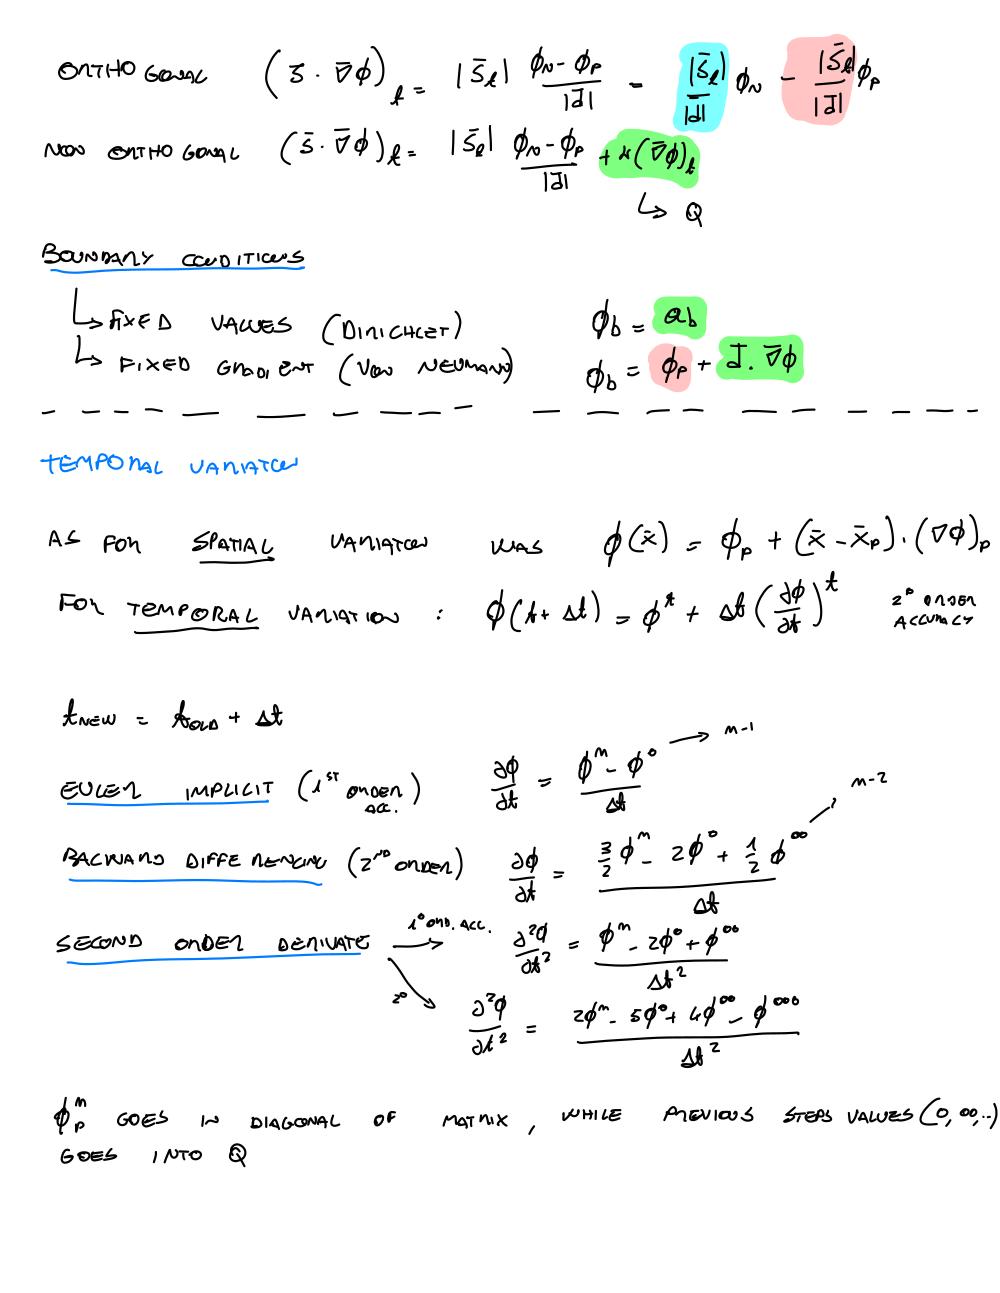 ORTHOGONAL (S̄ · ∇̄ϕ)_f = |S̄_f| (ϕ_N - ϕ_P)/|d̄| = |S̄_f|/|d̄| ϕ_N - |S̄_f|/|d̄| ϕ_P
NON ORTHOGONAL (S̄ · ∇̄ϕ)_f = |S̄_f| (ϕ_N - ϕ_P)/|d̄| + k(∇̄ϕ)_f
↳ Q
BOUNDARY CONDITIONS
↳ FIXED VALUES (DIRICHLET) ϕ_b = a_b
↳ FIXED GRADIENT (VON NEUMANN) ϕ_b = ϕ_P + d̄ · ∇̄ϕ
TEMPORAL VARIATION
AS FOR SPATIAL VARIATION WAS ϕ(x̄) = ϕ_P + (x̄ - x̄_P) · (∇ϕ)_P
FOR TEMPORAL VARIATION : ϕ(t + Δt) = ϕ^t + Δt (∂ϕ/∂t)^t 2° ORDER ACCURACY
t_NEW = t_OLD + Δt
EULER IMPLICIT (1ST ORDER ACC.) ∂ϕ/∂t = (ϕ^n - ϕ^o)/Δt → n-1
BACKWARD DIFFERENCING (2ND ORDER) ∂ϕ/∂t = (3/2 ϕ^n - 2ϕ^o + 1/2 ϕ^oo)/Δt → n-2
SECOND ORDER DERIVATE → 1° ORD. ACC. ∂²ϕ/∂t² = (ϕ^n - 2ϕ^o + ϕ^oo)/Δt²
2° ∂²ϕ/∂t² = (2ϕ^n - 5ϕ^o + 4ϕ^oo - ϕ^ooo)/Δt²
ϕ_P^n GOES IN DIAGONAL OF MATRIX, WHILE PREVIOUS STEPS VALUES (O, OO, ..)
GOES INTO Q